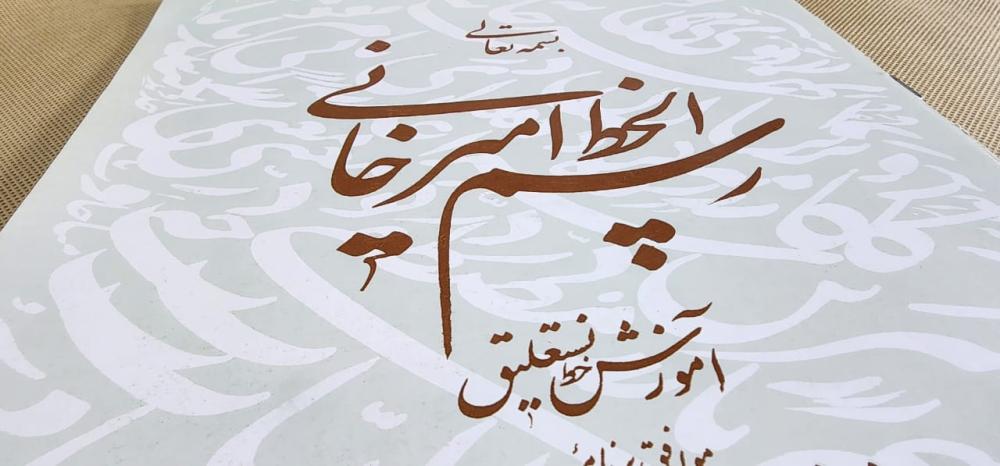 بسمه تعالی
رسم الخط امیرخانی
آموزش خط نستعلیق
موافق برنامهٔ